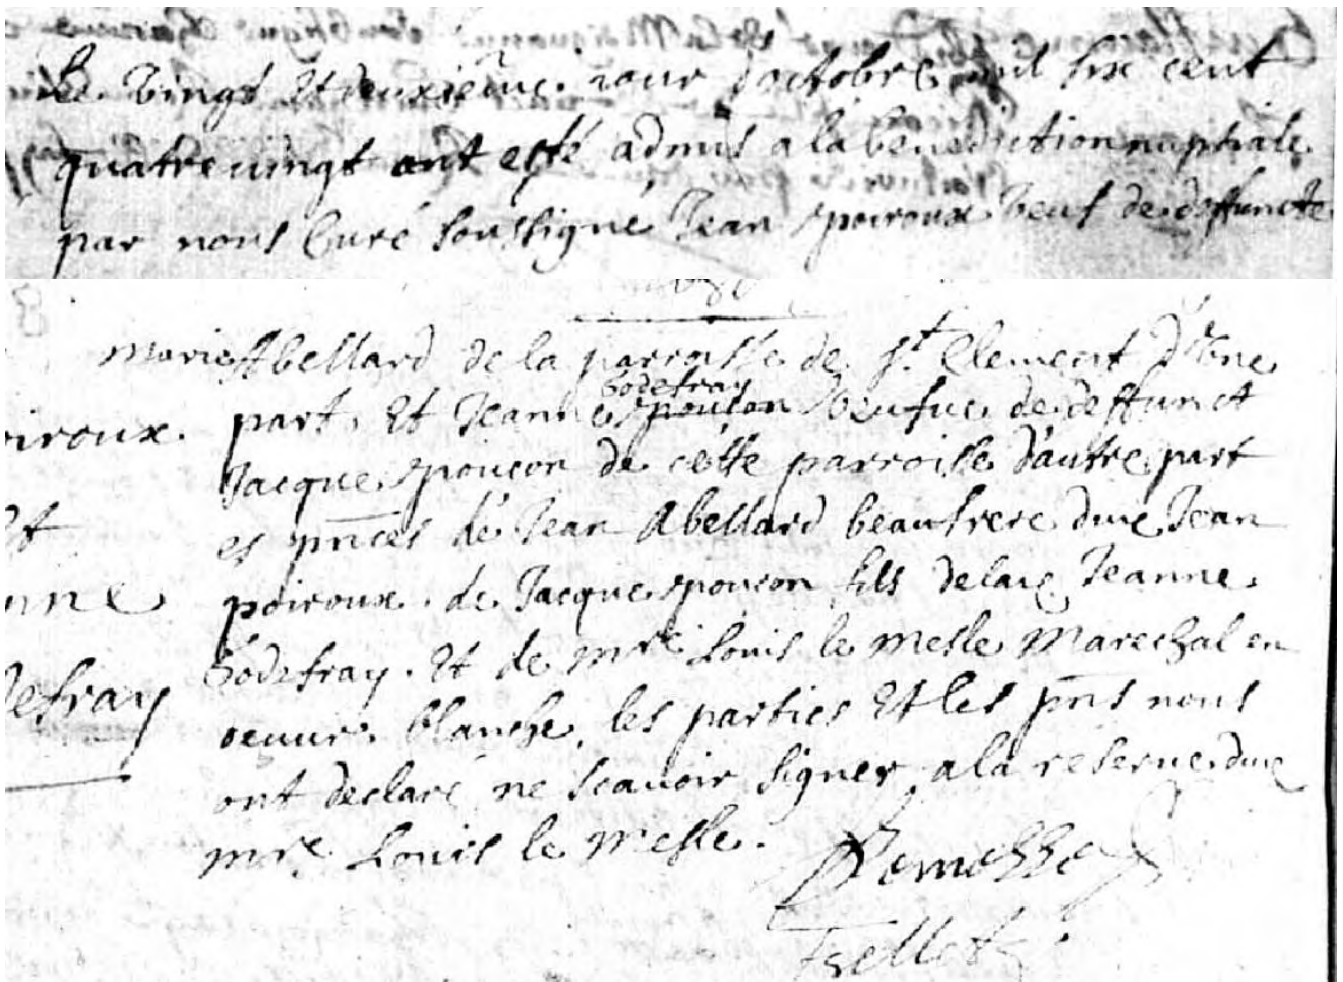 Le vingt et deuxieme jour d'octobre mil six cent
quatre vingt ont esté admis a la benediction nuptiale
par nous Curé soussigné Jean poiroux veuf de deffuncte
Marie Abellard de la parroisse de St. Clement d'une
Godefray
part, Et Jeanne pouson veufue de deffunct
oiroux. Jacque pouson de cette parroisse d'autre part
et es pnces de Jean Abellard beaufrere dud Jean
nne poiroux. de Jacque pouson fils de lad Jeanne
Godefray. Et de mre Louis le Mesle Marechal en
defray oeuure blanche, les parties Et les pnts nous
ont declaré ne scauoir signer a la reserue dud
mre Louis le Mesle.